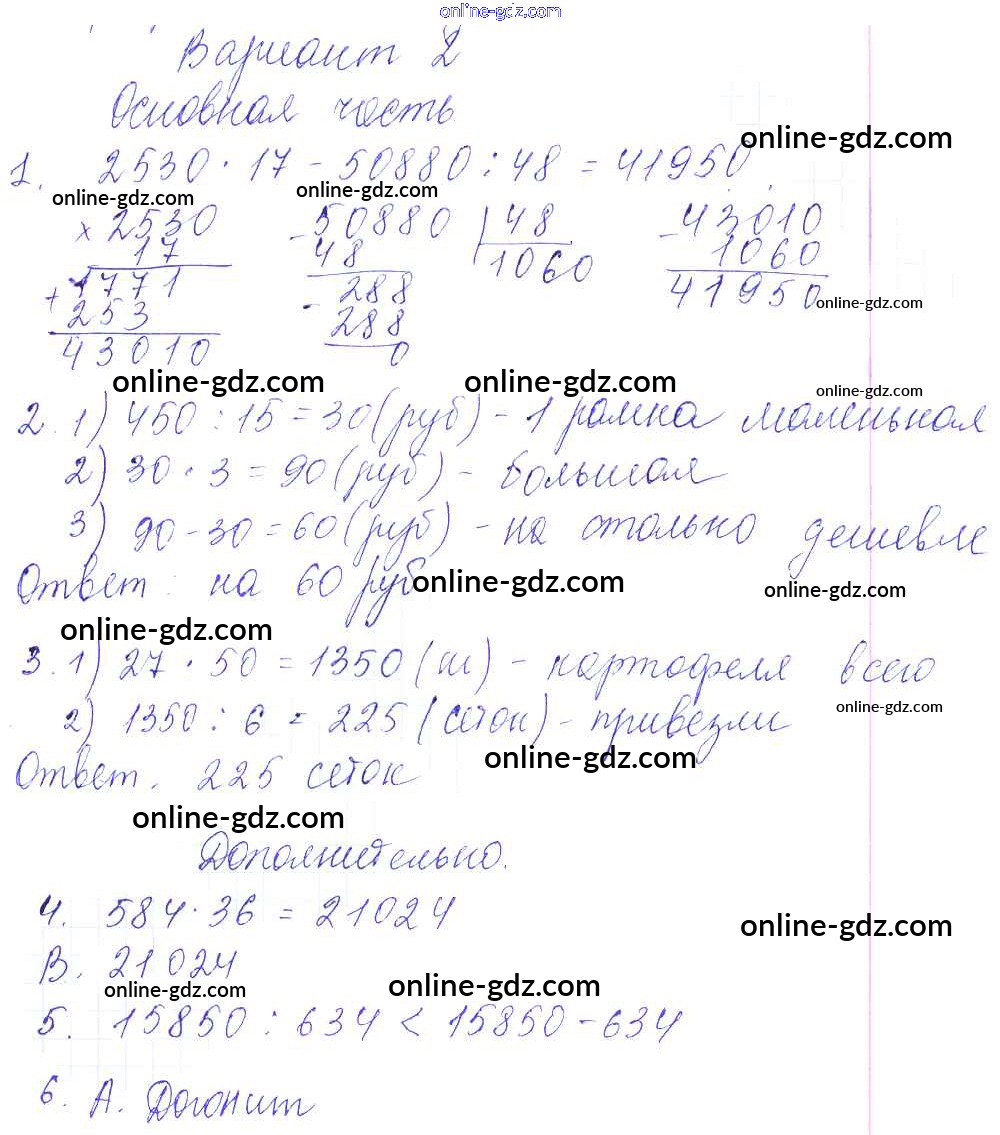 online-gdz.com
Вариант 2
Основная часть
online-gdz.com
1. 2530 · 17 - 50880 : 48 = 41950
online-gdz.com online-gdz.com
× 2530 - 50880 | 48 - 43010
17 48 1060 1060
+ 1771 - 288 41950 online-gdz.com
253 288
43010 0
online-gdz.com online-gdz.com online-gdz.com
2. 1) 450 : 15 = 30 (руб) - 1 рамка маленькая
2) 30 · 3 = 90 (руб) - большая
3) 90 - 30 = 60 (руб) - на столько дешевле
Ответ: на 60 руб online-gdz.com online-gdz.com
online-gdz.com
3. 1) 27 · 50 = 1350 (ш) - картофеля всего
2) 1350 : 6 = 225 (сеток) - привезли online-gdz.com
Ответ. 225 сеток online-gdz.com
online-gdz.com
Дополнительно.
4. 584 · 36 = 21024 online-gdz.com
В. 21024
online-gdz.com online-gdz.com
5. 15850 : 634 < 15850 - 634
6. А. Догонит